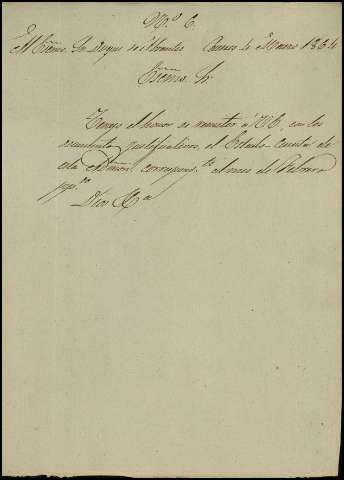 N.º 6.
Al Excmo. Sr. Duque de Marzo 1864
Excmo. Sr.
Tengo el honor de remitir a V.E. con los
documentos justificativos, el Estado-Cuenta de
esta correspond.te al mes de Febrero
pp.do
Dios &a